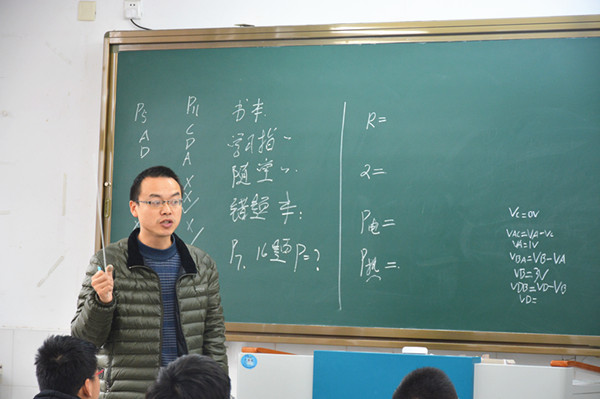 P5
A
D
P11
C
D
A
X
X
书本
学习指一
随堂〃.
错题本:
P7. 16题 P=?
R=
2=
P电=
P热=.
Vc=0V
VAC=VA-Vc
VA=1V
VBA=VB-VA
VB=3V
VDB=VD-VB
VD=